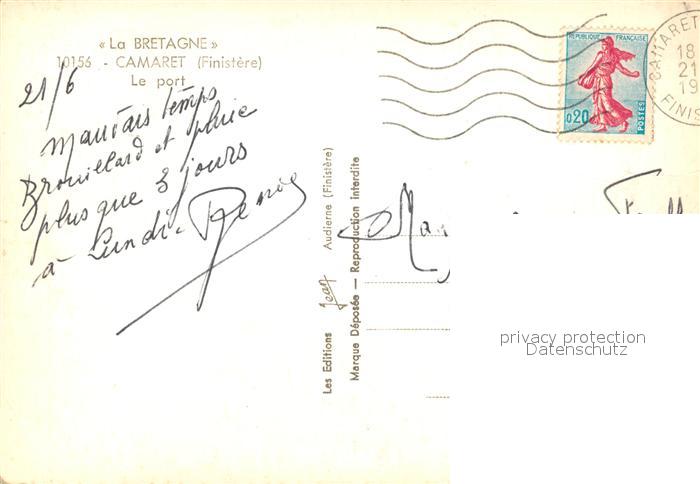 « La BRETAGNE »
10156 - CAMARET (Finistère)
Le port
21/6
Mauvais temps
Brouillard et pluie
plus que 3 jours
à Lundi.
Les Editions Jean Audierne (Finistère)
Marque Déposée — Reproduction interdite
REPUBLIQUE FRANÇAISE
0,20
POSTES
CAMARET
18
21
19
FINIS
privacy protection
Datenschutz